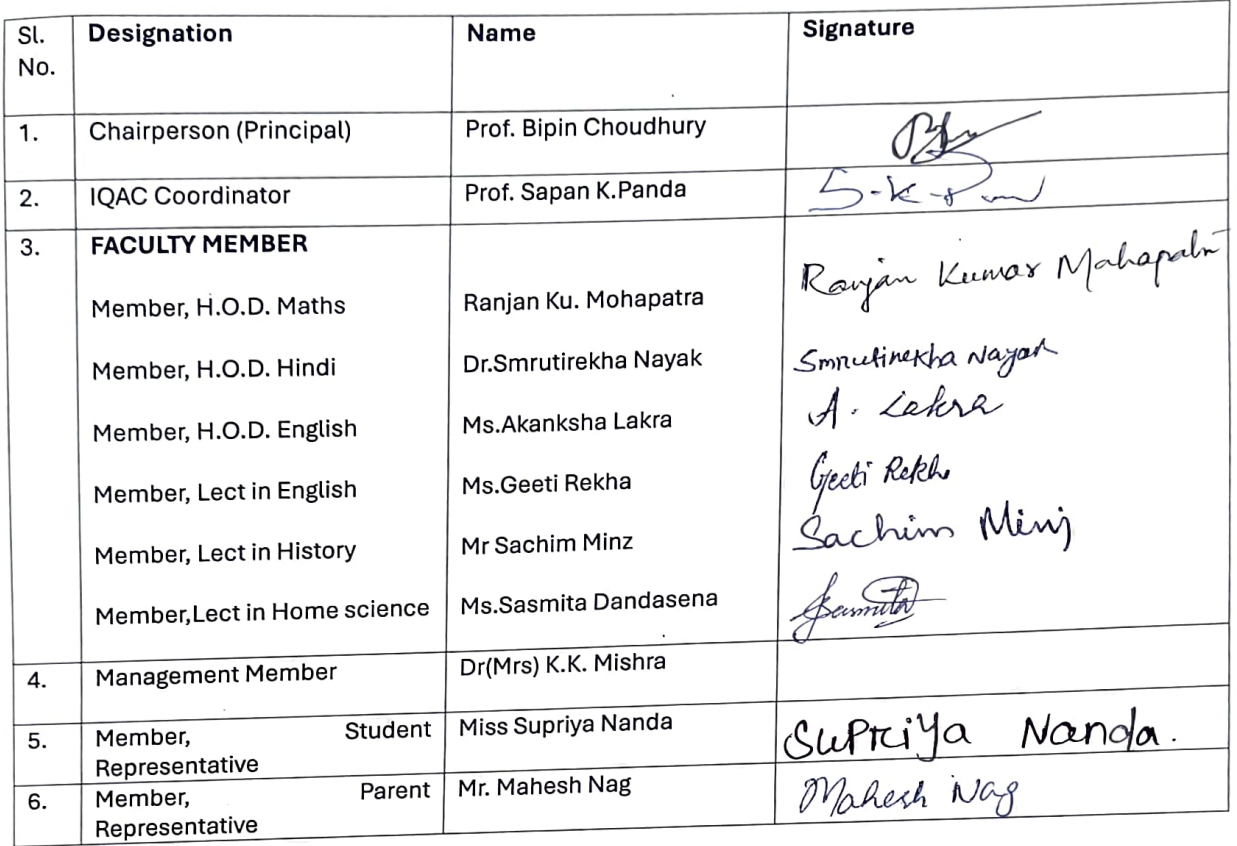 Sl. No. Designation Name Signature
1. Chairperson (Principal) Prof. Bipin Choudhury
2. IQAC Coordinator Prof. Sapan K.Panda S-K-
3. FACULTY MEMBER
Member, H.O.D. Maths Ranjan Ku. Mohapatra Ranjan Kumar Mahapatr
Member, H.O.D. Hindi Dr.Smrutirekha Nayak Smrutirekha Nayak
Member, H.O.D. English Ms.Akanksha Lakra A. Lakra
Member, Lect in English Ms.Geeti Rekha Geeti Rekh
Member, Lect in History Mr Sachim Minz Sachim Minj
Member,Lect in Home science Ms.Sasmita Dandasena Sasmita
4. Management Member Dr(Mrs) K.K. Mishra
5. Member, Student Representative Miss Supriya Nanda Supriya Nanda.
6. Member, Parent Representative Mr. Mahesh Nag Mahesh Nag